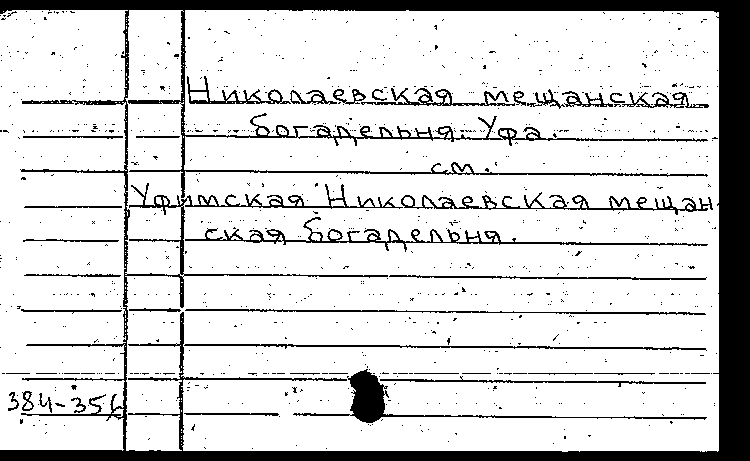 Николаевская мещанская
богадельня. Уфа.
см.
Уфимская Николаевская мещан
ская богадельня.